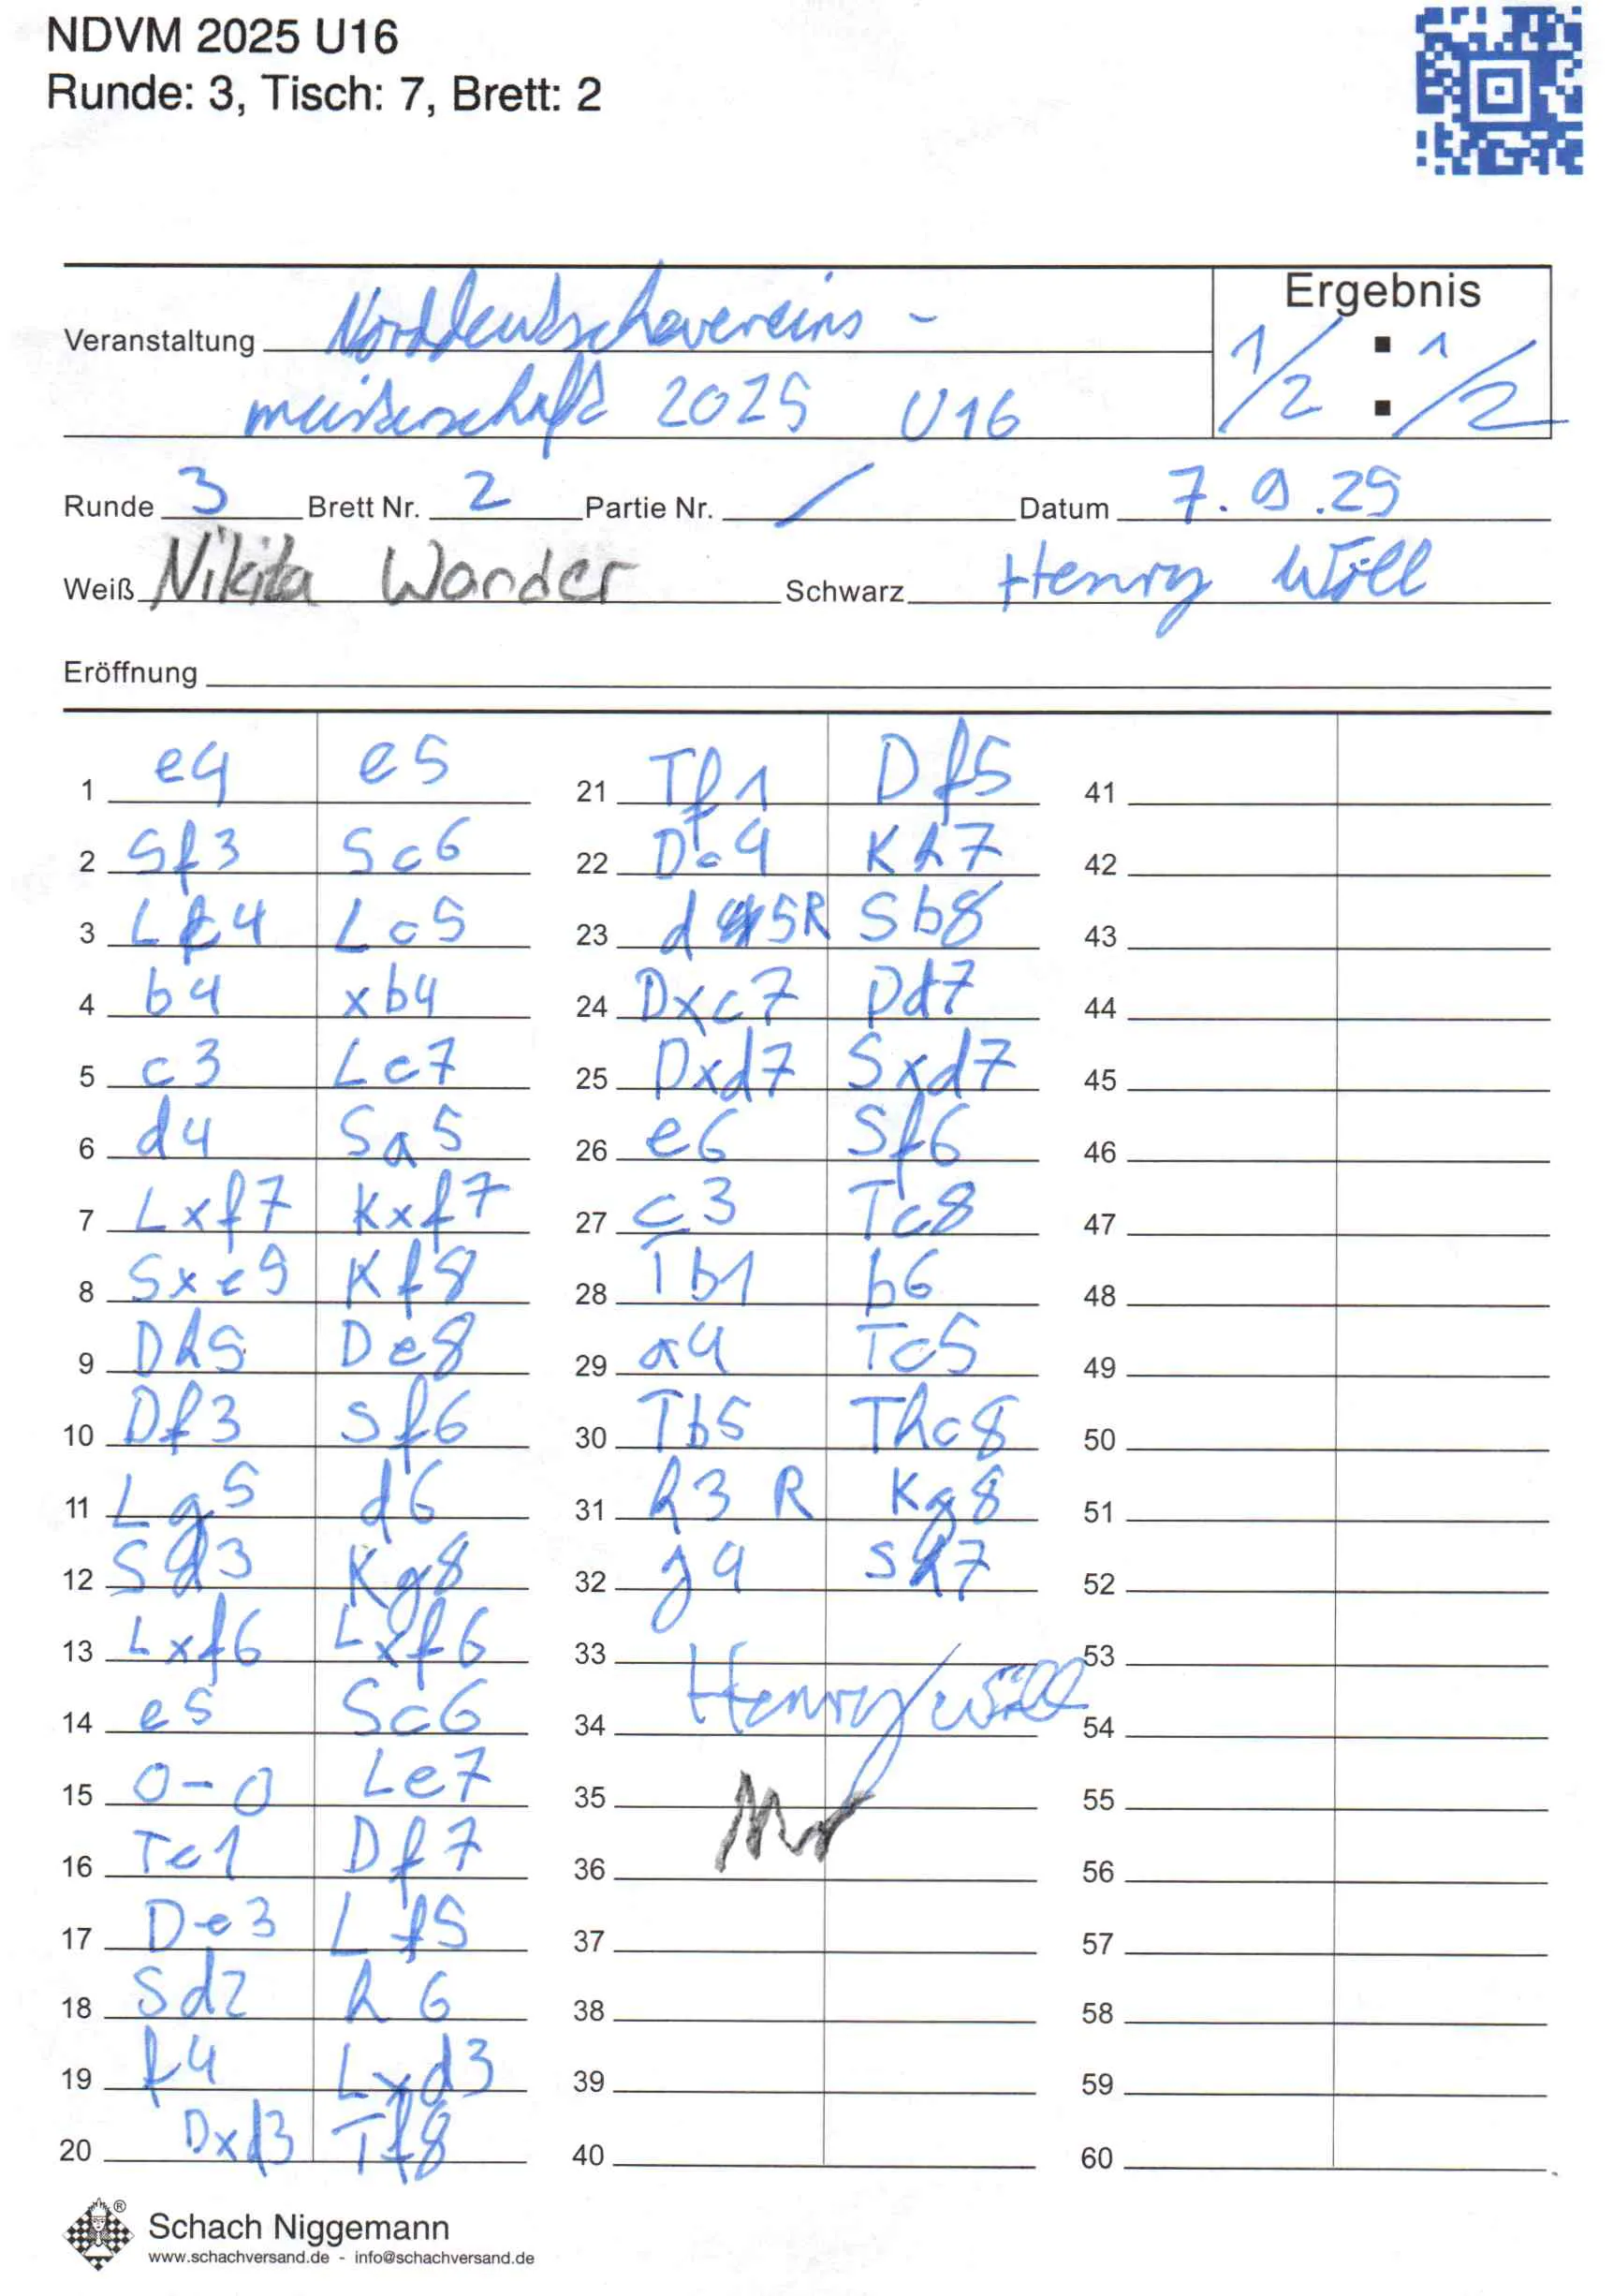 NDVM 2025 U16
Runde: 3, Tisch: 7, Brett: 2
Veranstaltung Norddeutschevereins -
meisterschaft 2025 U16
Ergebnis
1/2 : 1/2
Runde 3 Brett Nr. 2 Partie Nr. / Datum 7.9.25
Weiß Nikita Wander Schwarz Henry Wöll
Eröffnung
1 e4 e5
2 Sf3 Sc6
3 Lc4 Lc5
4 b4 xb4
5 c3 Le7
6 d4 Sa5
7 Lxf7 Kxf7
8 Sxe5 Kf8
9 Dh5 De8
10 Df3 Sf6
11 Lg5 d6
12 Sd3 Kg8
13 Lxf6 Lxf6
14 e5 Sc6
15 0-0 Le7
16 Te1 Df7
17 De3 Lf5
18 Sd2 h6
19 f4 Lxd3
20 Dxd3 Tf8
21 Tf1 Df5
22 Dc4 Kh7
23 d5 R Sb8
24 Dxc7 Dd7
25 Dxd7 Sxd7
26 e6 Sf6
27 c3 Tc8
28 Tb1 b6
29 a4 Tc5
30 Tb5 Thc8
31 h3 R Kg8
32 g4 Sh7
33
34 Henry Wöll
35
36
37
38
39
40
41
42
43
44
45
46
47
48
49
50
51
52
53
54
55
56
57
58
59
60
® Schach Niggemann
www.schachversand.de - info@schachversand.de